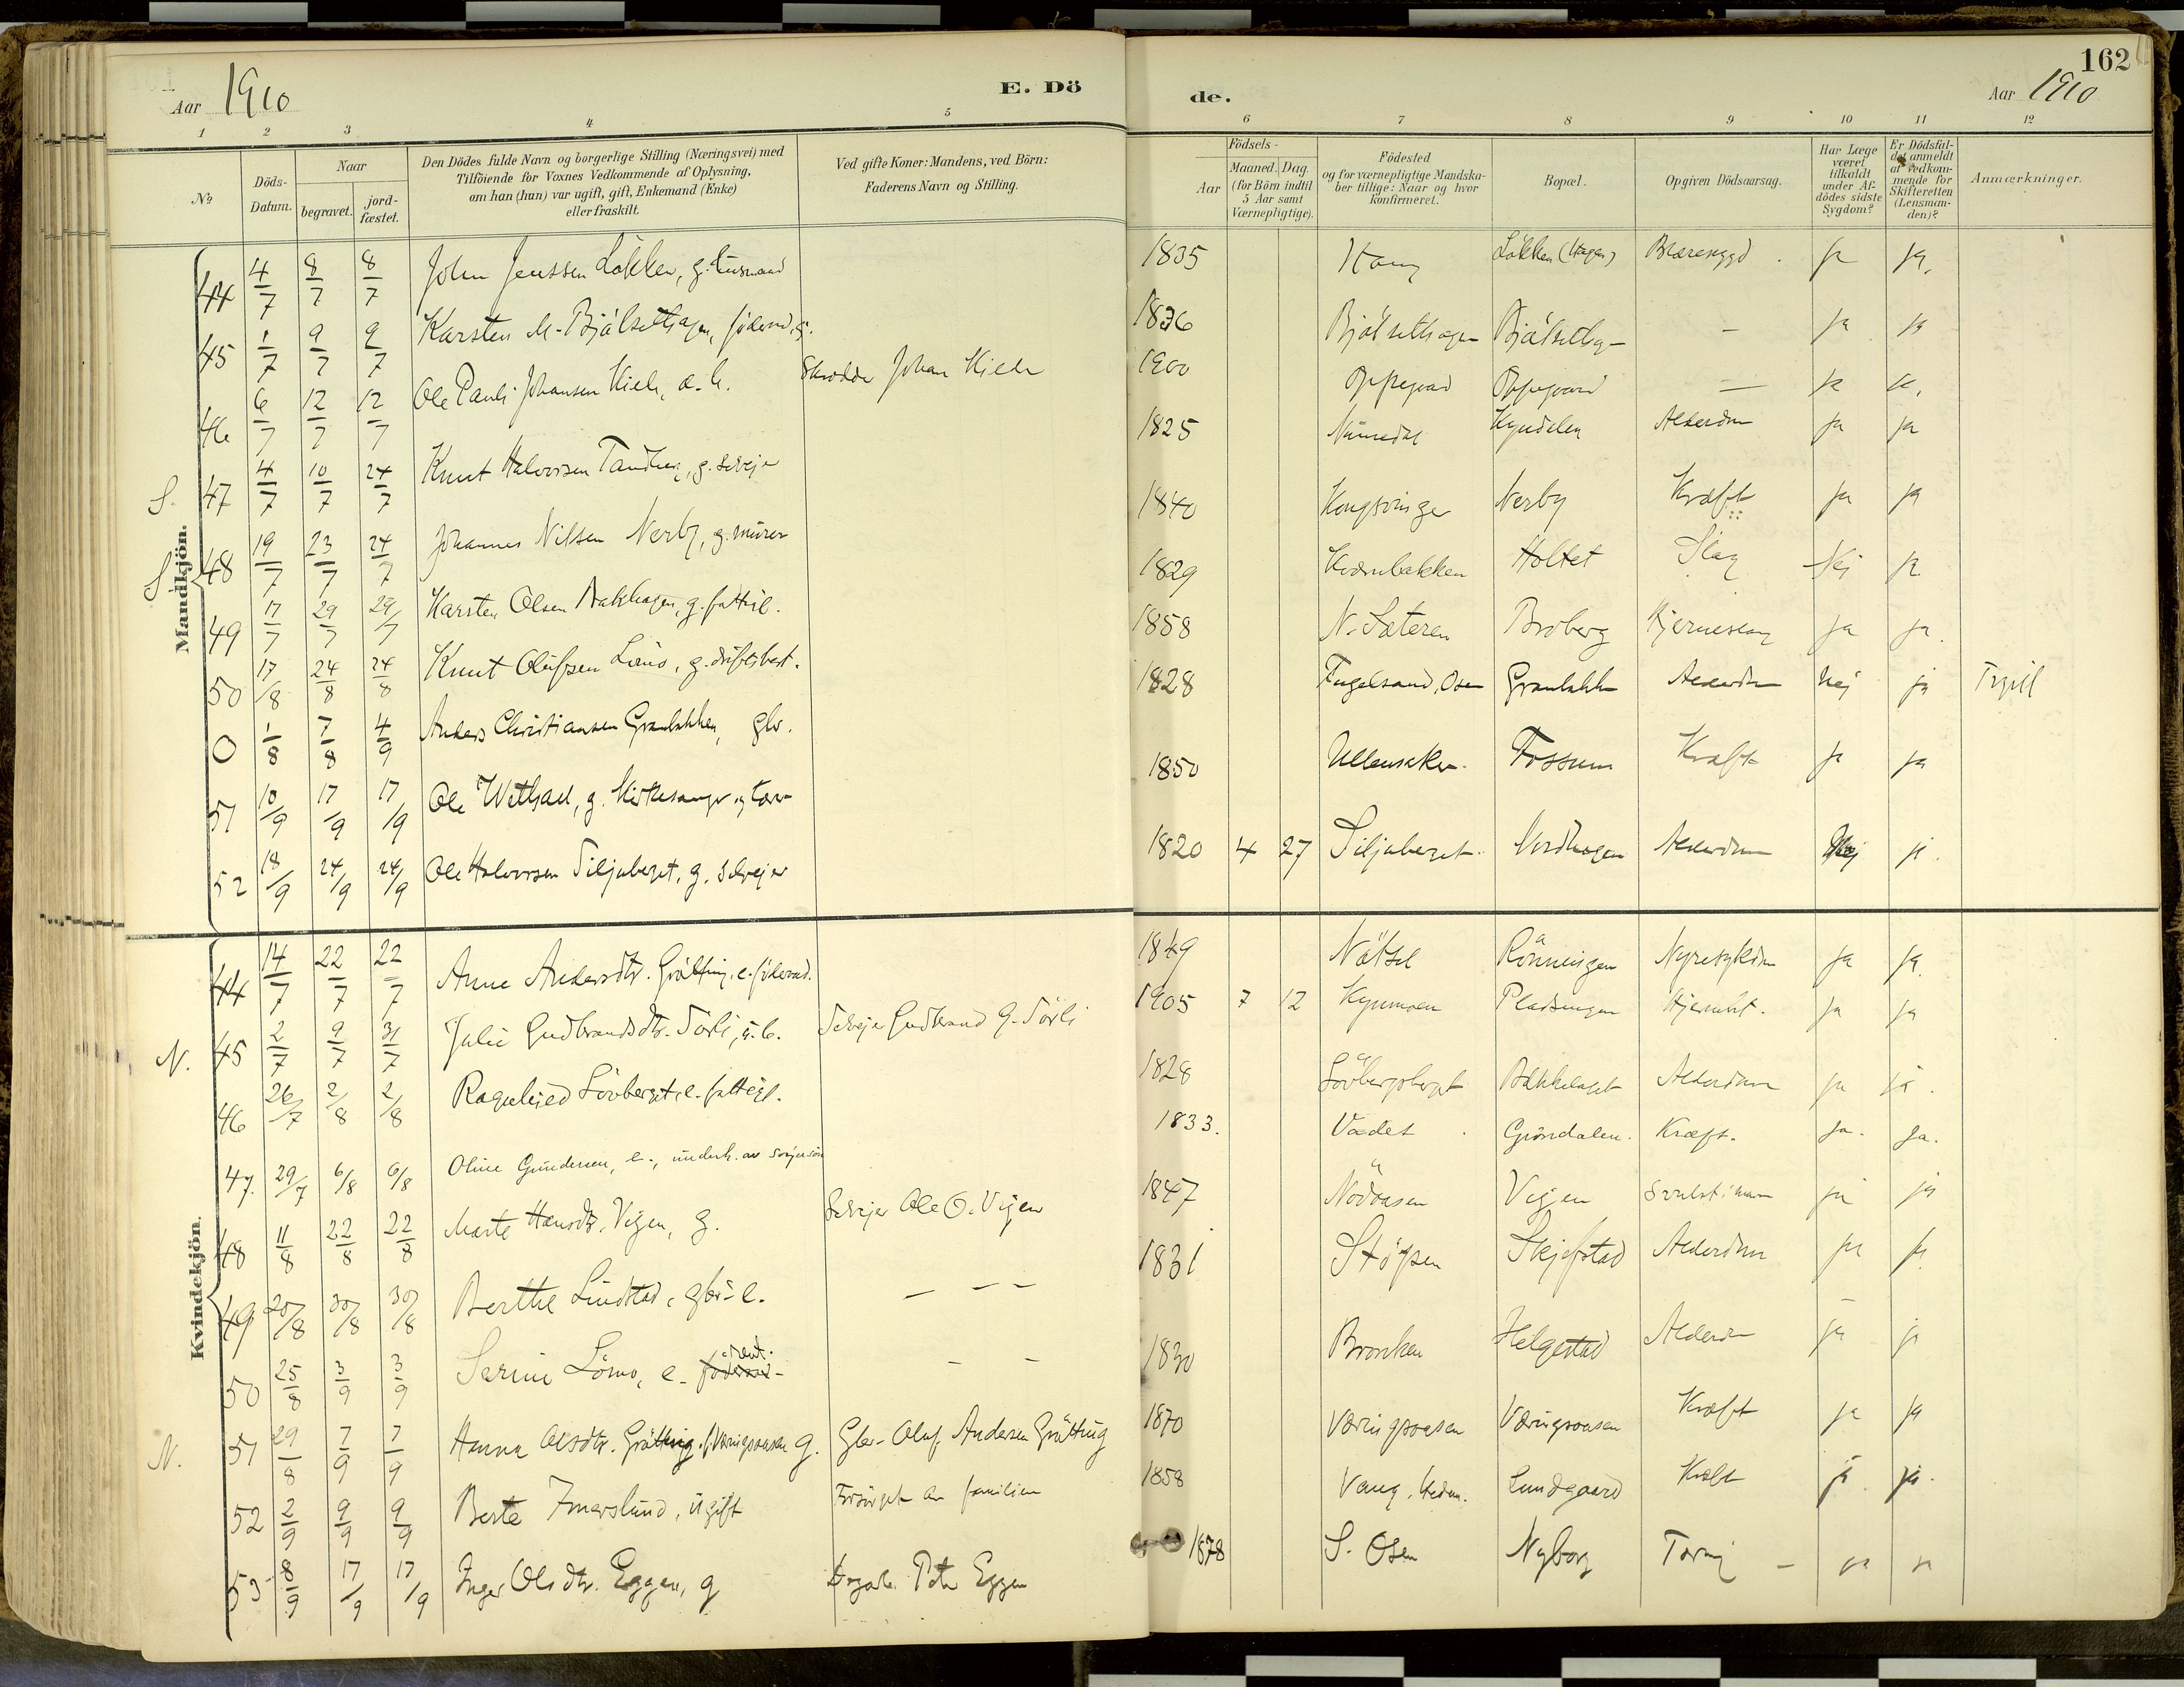 162
Aar 1910
E. Dö
de.
Aar 1910
1 2 3 4 5 6 7 8 9 10 11 12
No
Döds-Datum.
Naar
begravet.
jord-fæstet.
Den Dödes fulde Navn og borgerlige Stilling (Næringsvei) med
Tilföiende for Voxnes Vedkommende af Oplysning,
om han (hun) var ugift, gift, Enkemand (Enke)
eller fraskilt.
Ved gifte Koner: Mandens, ved Börn:
Faderens Navn og Stilling.
Födsels-
Aar
Maaned. Dag.
(for Börn indtil
5 Aar samt
Værnepligtige).
Födested
og for værnepligtige Mandska-
ber tillige: Naar og hvor
konfirmeret.
Bopæl.
Opgiven Dödsaarsag.
Har Læge
været
tilkaldt
under Af-
dödes sidste
Sygdom?
Er Dödsfal-
det anmeldt
af Vedkom-
mende for
Skifteretten
(Lensman-
den)?
Anmærkninger.
Mandkjön.
44 4/7 8/7 8/7 John Jenssen Løkken, g. husmand 1835 Løkken (Hagen) Blæresygd. ja ja.
45 1/7 9/7 9/7 Karsten M. Bjølsethagen, føderåd, g. 1836 Bjølsethagen Bjølsethagen – ja ja
46 6/7 12/7 12/7 Ole Pauli Johansen Kiele, æ. b. Skrædder Johan Kiele 1900 Oppegaard Oppegaard — ja ja.
S. 47 4/7 10/7 24/7 Knut Halvorsen Tandberg, g. selvejer 1825 Numedal Kyndalen Alderdom ja ja
S. 48 19/7 23/7 24/7 Johannes Nilsen Nerby, g. murer 1840 Kongsvinger Nerby Kræft ja ja
49 17/7 29/7 29/7 Karsten Olsen Bakhagen, g. fattigl. 1829 Kværnbakken Holtet Slag Nej ja
50 17/8 24/8 24/8 Knut Olufsen Lømo, g. driftsbest. 1858 N. Sæteren Broberg Hjerneslag ja ja.
0 1/8 7/8 4/9 Anders Christiansen Granbakken, gbr. 1828 Fugelsand, Osen Granbakken Alderdom Nej ja Trysil
51 10/9 17/9 17/9 Ole Wethal, g. Kirkesanger og lærer 1850 Ullensaker Fossum Kræft ja ja
52 18/9 24/9 24/9 Ole Halvorsen Siljuberget, g. selvejer 1820 4 27 Siljuberget Nordhagen Alderdom Nej ja.
Kvindekjön.
44 14/7 22/7 22/7 Anne Andersdtr. Grøtting, e. føderåd. 1849 Nøtsel Rønningen Nyresykdom ja ja.
N. 45 2/7 9/7 31/7 Julie Gudbrandsdtr. Sørli, u. b. Selvejer Gudbrand G. Sørli 1905 7 12 Kynmoen Pladsengen ja ja
46 26/7 2/8 2/8 Ragnhild Løvberget, e. fattigl. 1828 Løvbergsberget Bakkelaget Alderdom ja ja.
47. 29/7 6/8 6/8 Oline Gundersen, e., underh. av svigersøn 1833. Vadet Grøndalen. Kræft. ja. ja.
48 11/8 22/8 22/8 Marte Hansdtr. Vigen, g. Selvejer Ole O. Vigen 1847 Nødaasen Vigen ja ja
49 20/8 30/8 30/8 Berthe Lindstad, gbr.-e. – – – 1831 Støpsen Skjefstad Alderdom ja ja
50 25/8 3/9 3/9 Serine Lømo, e. føderåd rent. – – 1830 Bronken Helgestad Alderdom ja ja
N. 51 29/8 7/9 7/9 Hanna Olsdtr. Grøtting f. Væringsaasen g. Gbr. Oluf Andersen Grøtting 1870 Væringsaasen Væringsaasen Kræft ja ja
52 2/9 9/9 9/9 Berte Imerslund, ugift Forsørget av familien 1858 Vang, Hedm. Lundgaard Kræft ja ja.
53 8/9 17/9 17/9 Inger Olsdtr. Eggen, g Peter Eggen 1878 S. Osen Nyborg Tæring – ja ja